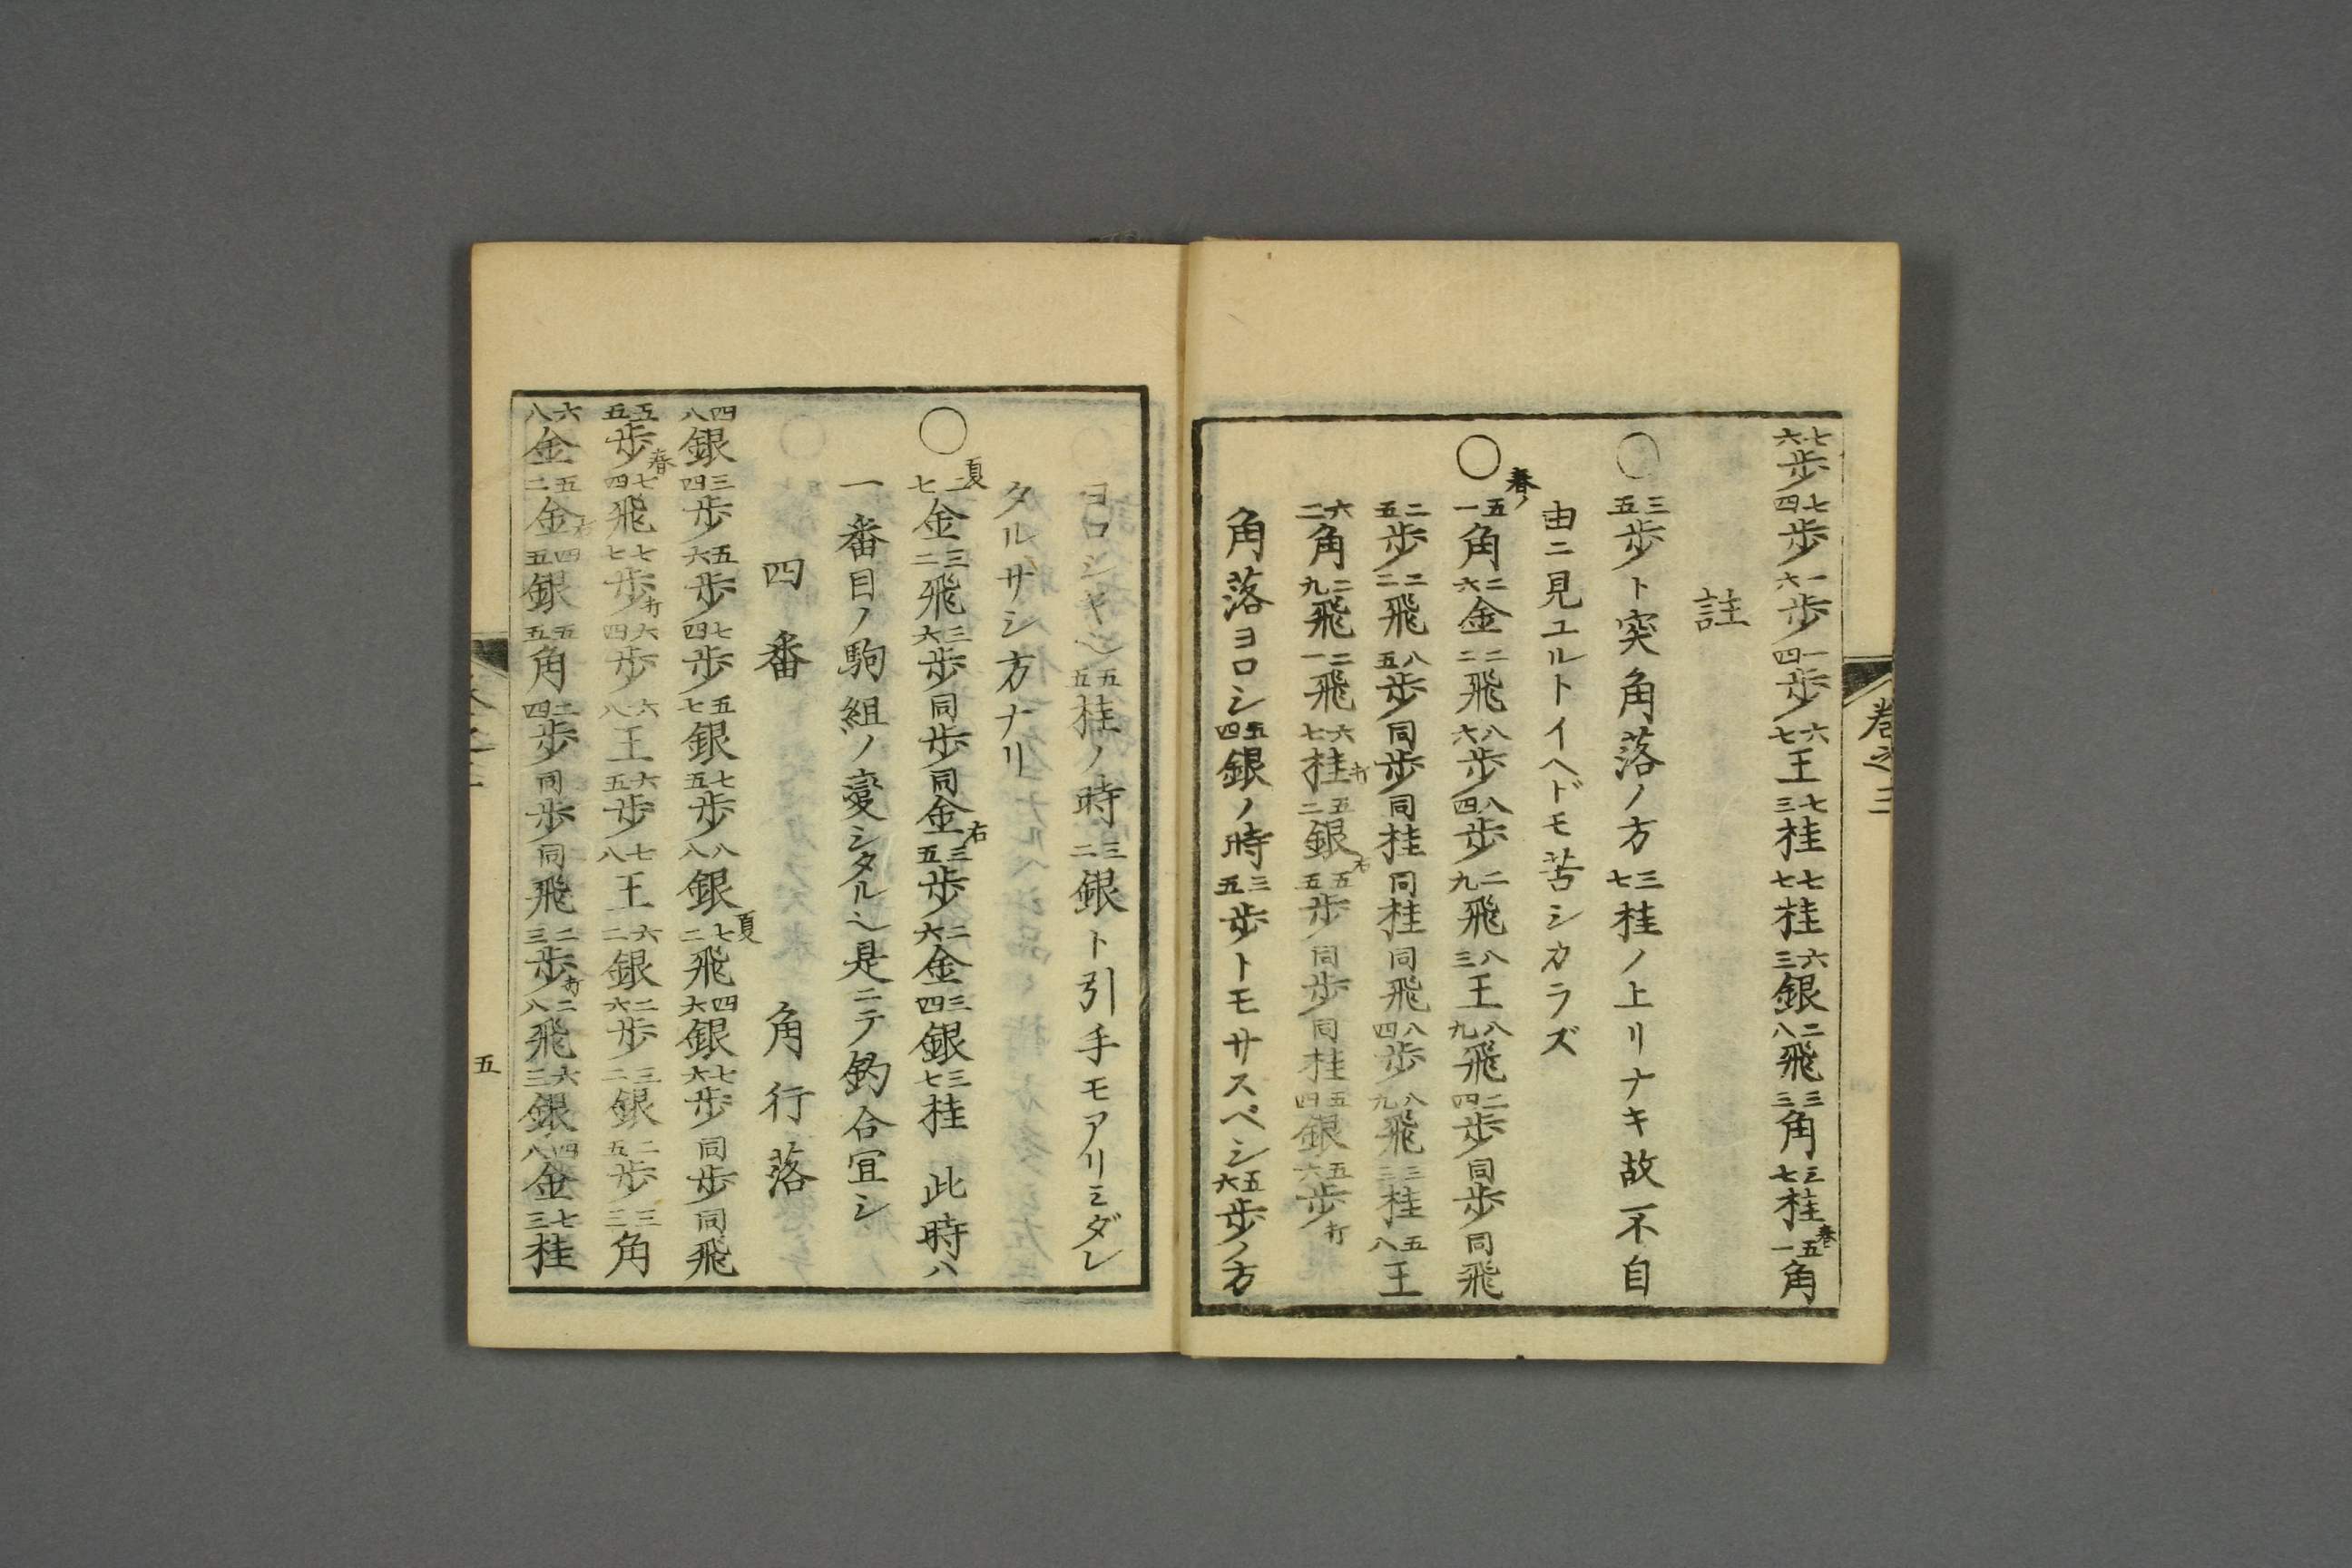 巻之三
七六歩七四歩一六歩一四歩六七王七三桂七七桂六三銀二八飛三三角三七桂春五一角
註
○三五歩ト突角落ノ方三七桂ノ上リナキ故不自
由ニ見ユルトイヘドモ苦シカラズ
○春ノ五一角二六金二二飛八六歩八四歩二九飛八三王八九飛二四歩同歩同飛
二五歩二二飛八五歩同歩同桂同桂同飛八四歩八九飛三三桂五八王
六二角二九飛二一飛六七桂打五二銀右五五歩同歩同桂五四銀五六歩打
角落ヨロシ五四銀ノ時三五歩トモサスベシ五六歩ノ方
ヨロシキ也五五桂ノ時三二銀ト引手モアリミダレ
タルサシ方ナリ
○夏二七金三二飛三六歩同歩同金右三五歩二六金三四銀三七桂 此時ハ
一番目ノ駒組ノ變シタル也是ニテ釣合宜シ
四番 角行落
四八銀三四歩五六歩七四歩五七銀七五歩八八銀夏七二飛四六銀七六歩同歩同飛
五五歩春七四飛七七歩打六四歩六八王六五歩七八王六二銀二六歩三二銀二五歩三三角
六八金五二金右四五銀五五角二四歩同歩同飛二三歩打二八飛六三銀四八金七三桂
五